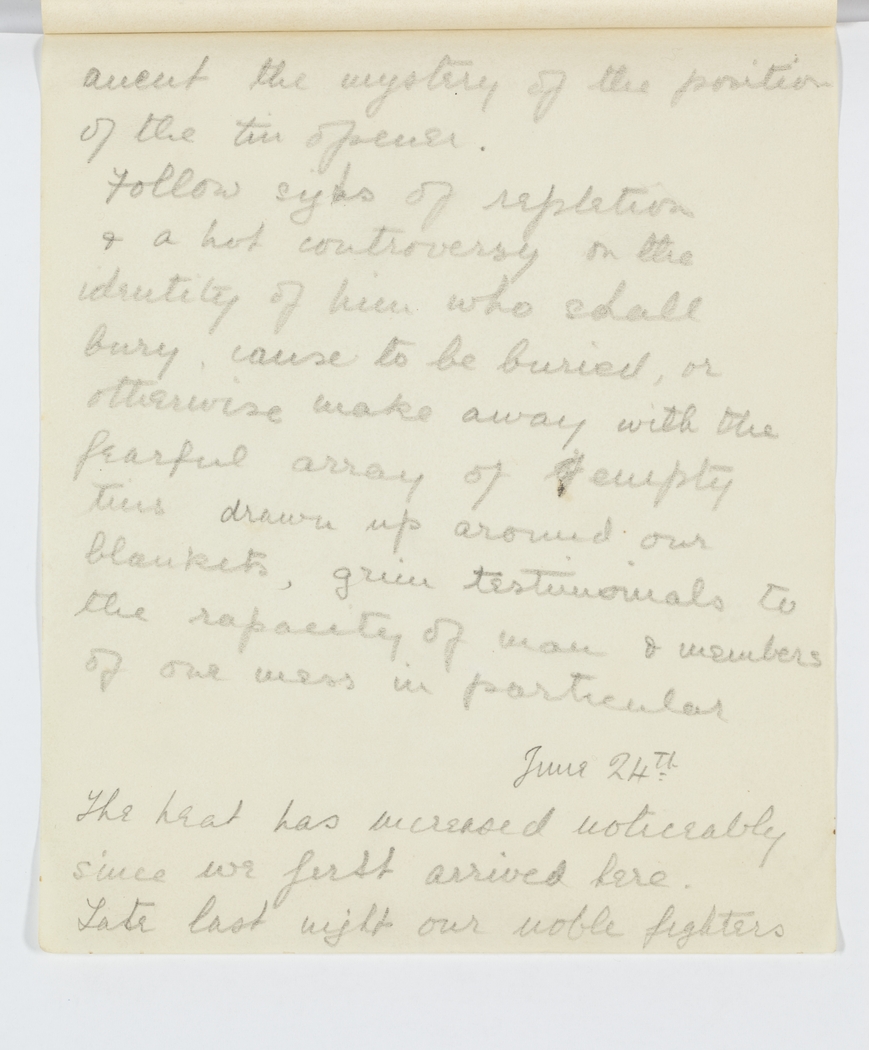 anent the mystery of the position
of the tin opener.
Follow sighs of repletion
& a hot controversy on the
identity of him who shall
bury, cause to be buried, or
otherwise make away with the
fearful array of empty
tins drawn up around our
blankets, grim testimonials to
the rapacity of man & members
of our mess in particular
June 24th
The heat has increased noticeably
since we first arrived here.
Late last night our noble fighters